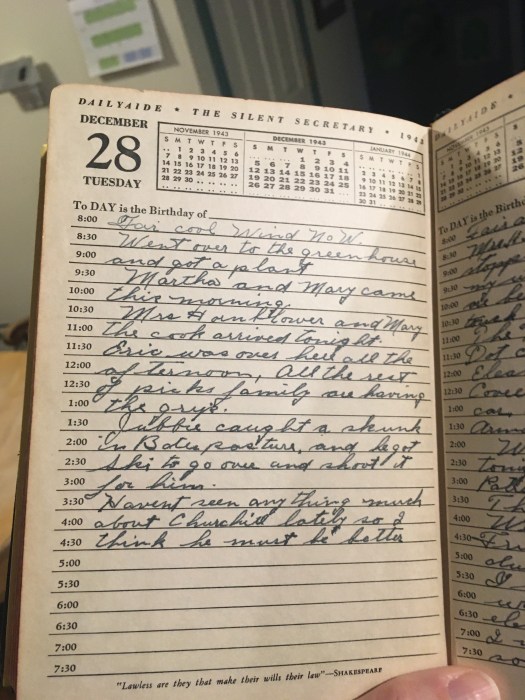 DAILYAIDE • THE SILENT SECRETARY • 1943
DECEMBER
28
TUESDAY
NOVEMBER 1943
S M T W T F S
.. 1 2 3 4 5 6
7 8 9 10 11 12 13
14 15 16 17 18 19 20
21 22 23 24 25 26 27
28 29 30 .. .. .. ..
DECEMBER 1943
S M T W T F S
1 2 3 4
5 6 7 8 9 10 11
12 13 14 15 16 17 18
19 20 21 22 23 24 25
26 27 28 29 30 31 ..
JANUARY 1944
S M T W T F S
To DAY is the Birthday of
8:00 Fair cool Wind No W.
8:30 Went over to the greenhouse
9:00 and got a plant
9:30 Martha and Mary came
10:00 this morning.
10:30 Mrs Hankflower and Mary
11:00 the cook arrived tonight.
11:30 Eric was over here all the
12:00 afternoon, All the rest
12:30 of picks family are having
1:00 the gryp.
1:30 Tubbie caught a skunk
2:00 in Bates pasture, and he got
2:30 Ski to go over and shoot it
3:00 for him.
3:30 Havent seen anything much
4:00 about Churchill lately so I
4:30 think he must be better
5:00
5:30
6:00
6:30
7:00
7:30
"Lawless are they that make their wills their law"—SHAKESPEARE
DAILYAIDE •
To DAY is the Birthd
8:00
8:30
9:00
9:30
10:00
10:30
11:00
11:30
12:00
12:30
1:00
1:30
2:00
2:30
3:00
3:30
4:00
4:30
5:00
5:30
6:00
6:30
7:00
7:30